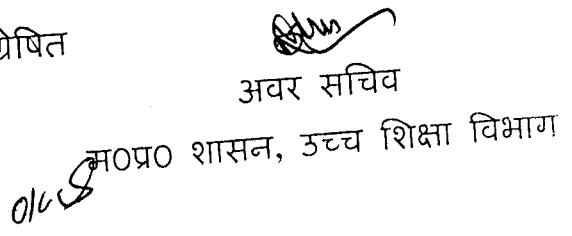 प्रेषित
अवर सचिव
म०प्र० शासन, उच्च शिक्षा विभाग